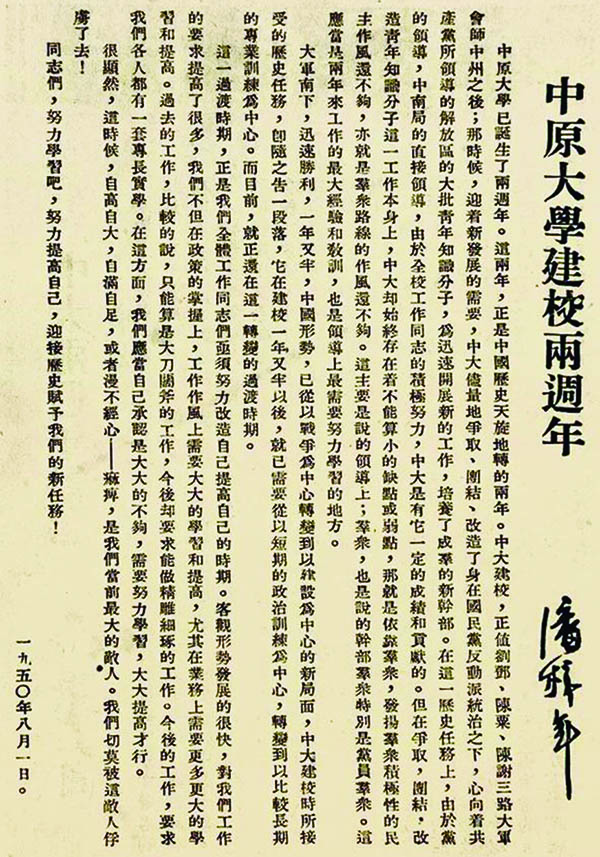 中原大學建校兩週年
潘梓年
中原大學已誕生了兩週年。這兩年，正是中國歷史天旋地轉的兩年。中大建校，正值劉鄧、陳粟、陳謝三路大軍
會師中州之後；那時候，迎着新發展的需要，中大儘量地爭取、團結、改造了身在國民黨反動派統治之下，心向着共
產黨所領導的解放區的大批青年知識分子，爲迅速開展新的工作，培養了成羣的新幹部。在這一歷史任務上，由於黨
的領導，中南局的直接領導，由於全校工作同志的積極努力，中大是有它一定的成績和貢獻的。但在爭取，團結，改
造青年知識分子這一工作本身上，中大却始終存在着不能算小的缺點或弱點，那就是依靠羣衆，發揚羣衆積極性的民
主作風還不夠，亦就是羣衆路線的作風還不夠。這主要是說的領導上；羣衆，也是說的幹部羣衆特別是黨員羣衆。這
應當是兩年來工作的最大經驗和敎訓，也是領導上最需要努力學習的地方。
大軍南下，迅速勝利，一年又半，中國形勢，已從以戰爭爲中心轉變到以建設爲中心的新局面，中大建校時所接
受的歷史任務，卽隨之告一段落，它在建校一年又半以後，就已需要從以短期的政治訓練爲中心，轉變到以比較長期
的專業訓練爲中心。而目前，就正還在這一轉變的過渡時期。
這一過渡時期，正是我們全體工作同志們亟須努力改造自己提高自己的時期。客觀形勢發展的很快，對我們工作
的要求提高了很多，我們不但在政策的掌握上，工作作風上需要大大的學習和提高，尤其在業務上需要更多更大的學
習和提高。過去的工作，比較的說，只能算是大刀闊斧的工作，今後却要求能做精雕細琢的工作。今後的工作，要求
我們各人都有一套專長實學。在這方面，我們應當自己承認是大大的不夠，需要努力學習，大大提高才行。
很顯然，這時候，自高自大，自滿自足，或者漫不經心——痲痺，是我們當前最大的敵人。我們切莫被這敵人俘
虜了去！
同志們，努力學習吧，努力提高自己，迎接歷史賦予我們的新任務！
一九五〇年八月一日。